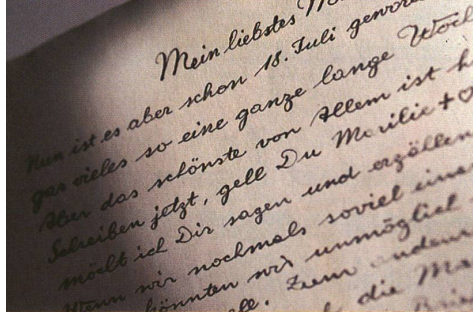 Mein liebstes
Nun ist es aber schon 18. Juli
gar vieles so eine ganze lange
Aber das schönste von Allem ist
Schreiben jetzt, gell Du
möcht ich Dir sagen und erzöllen
Wenn wir nochmals soviel
könnten wir unmöglich
Zum
die